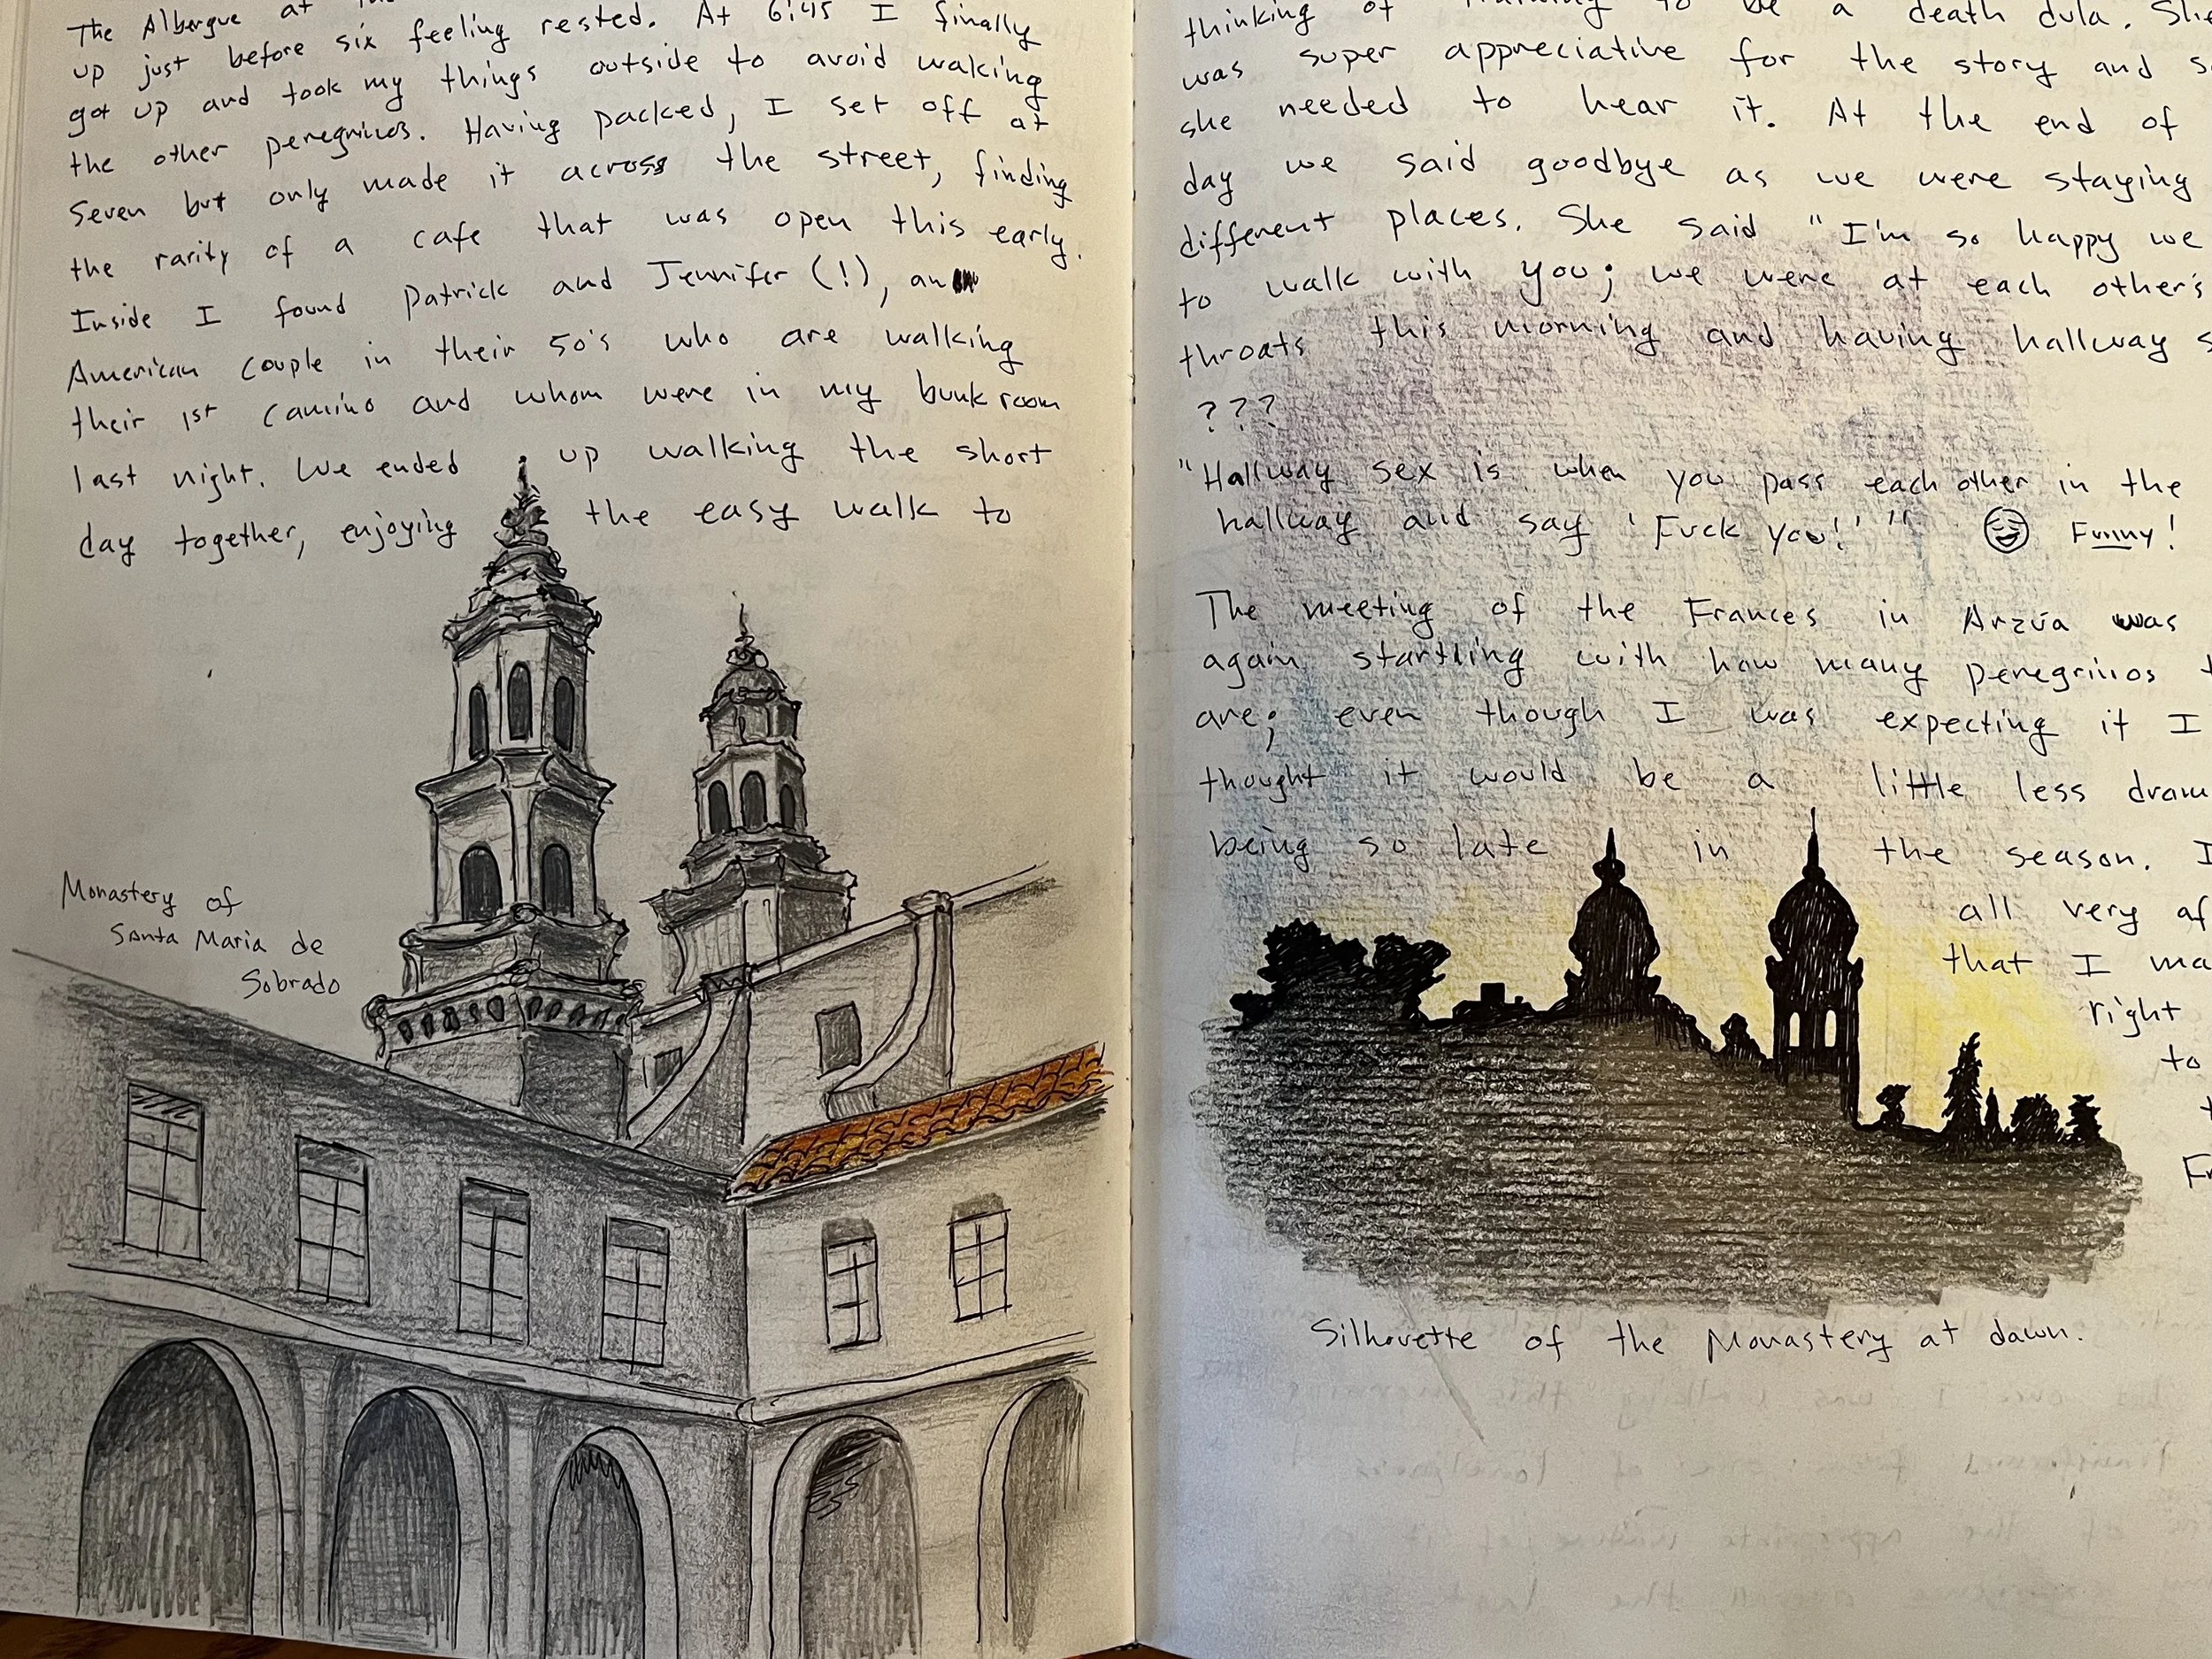 The Albergue at
up just before six feeling rested. At 6:45 I finally
got up and took my things outside to avoid waking
the other peregrinos. Having packed, I set off at
Seven but only made it across the street, finding
the rarity of a cafe that was open this early.
Inside I found Patrick and Jennifer (!), an
American couple in their 50's who are walking
their 1st Camino and whom were in my bunk room
last night. We ended up walking the short
day together, enjoying the easy walk to
Monastery of
Santa Maria de
Sobrado
thinking of training to be a death dula. She
was super appreciative for the story and
she needed to hear it. At the end of
day we said goodbye as we were staying
different places. She said "I'm so happy we
to walk with you; we were at each other's
throats this morning and having hallway
???
"Hallway sex is when you pass each other in the
hallway and say 'Fuck you!'" Funny!
The meeting of the Frances in Arzúa was
again startling with how many peregrinos
are; even though I was expecting it I
thought it would be a little less
being so late in the season.
all very
that I
right
to
Silhouette of the Monastery at dawn.